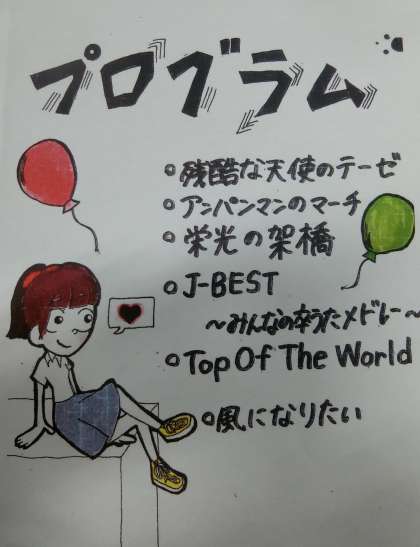 プログラム
○残酷な天使のテーゼ
○アンパンマンのマーチ
○栄光の架橋
○J-BEST
〜みんなの卒うたメドレー〜
○Top Of The World
○風になりたい